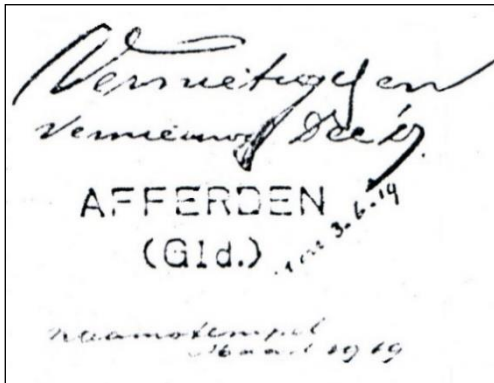 Vernietigd en
vernieuwd Dec '19
AFFERDEN
(Gld.)
3.6.19
naamstempel
Maart 1919